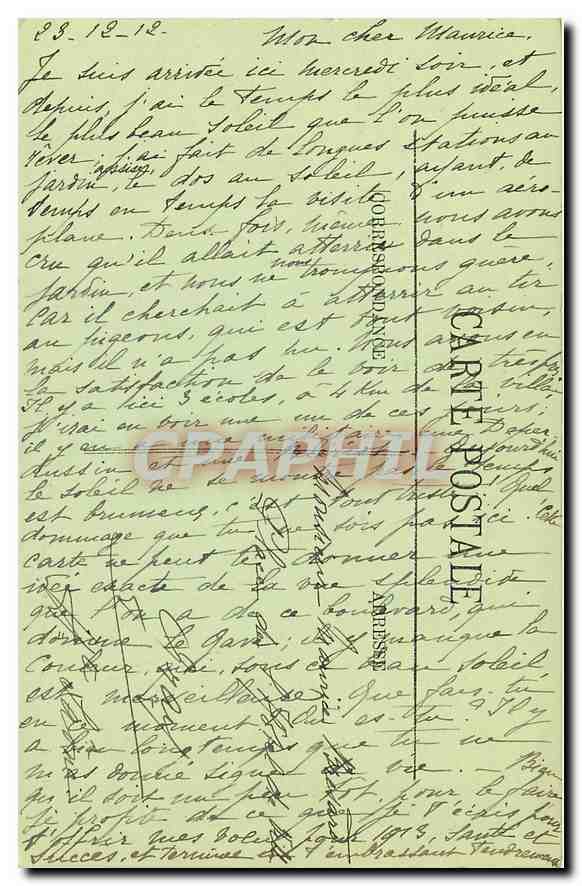 23-12-12.
Mon cher Maurice,
Je suis arrivée ici mercredi soir, et
depuis, j'ai le temps le plus idéal,
le plus beau soleil que l'on puisse
rêver; j'ai fait de longues stations au
jardin, assise, le dos au soleil, ayant, de
temps en temps la visite d'un aéro-
plane. Deux fois, même nous avons
cru qu'il allait atterrir dans le
jardin, et nous ne nous trompions guère,
car il cherchait à atterrir au tir
au pigeons, qui est tout voisin,
mais il n'a pas pu. Nous avons eu
la satisfaction de le voir de très près
Il y a ici 3 écoles, à 4 Km de la ville
J'irai en voir une un de ces jours;
il y en a une militaire, une Deper
dussin et une
le soleil ne se montre pas, le temps
est brumeux, c'est tout triste! Quel
dommage que tu ne sois pas ici. Cette
carte ne peut te donner une
idée exacte de la vue splendide
que l'on a de ce boulevard, qui
domine le Gave; il y manque la
couleur, qui, sous ce beau soleil
est merveilleuse. Que fais-tu
en ce moment? Où es-tu? Il y
a si longtemps que tu ne
m'as donné signe de vie. - Bien
qu'il soit un peu tôt pour le faire
je profite de ce que je t'écris pour
t'offrir mes voeux pour 1913, santé et
succès, et termine en t'embrassant tendrement
CARTE POSTALE
CORRESPONDANCE
ADRESSE
Monsieur Maurice
Place de l'Hôtel de Ville
CPAPHIL